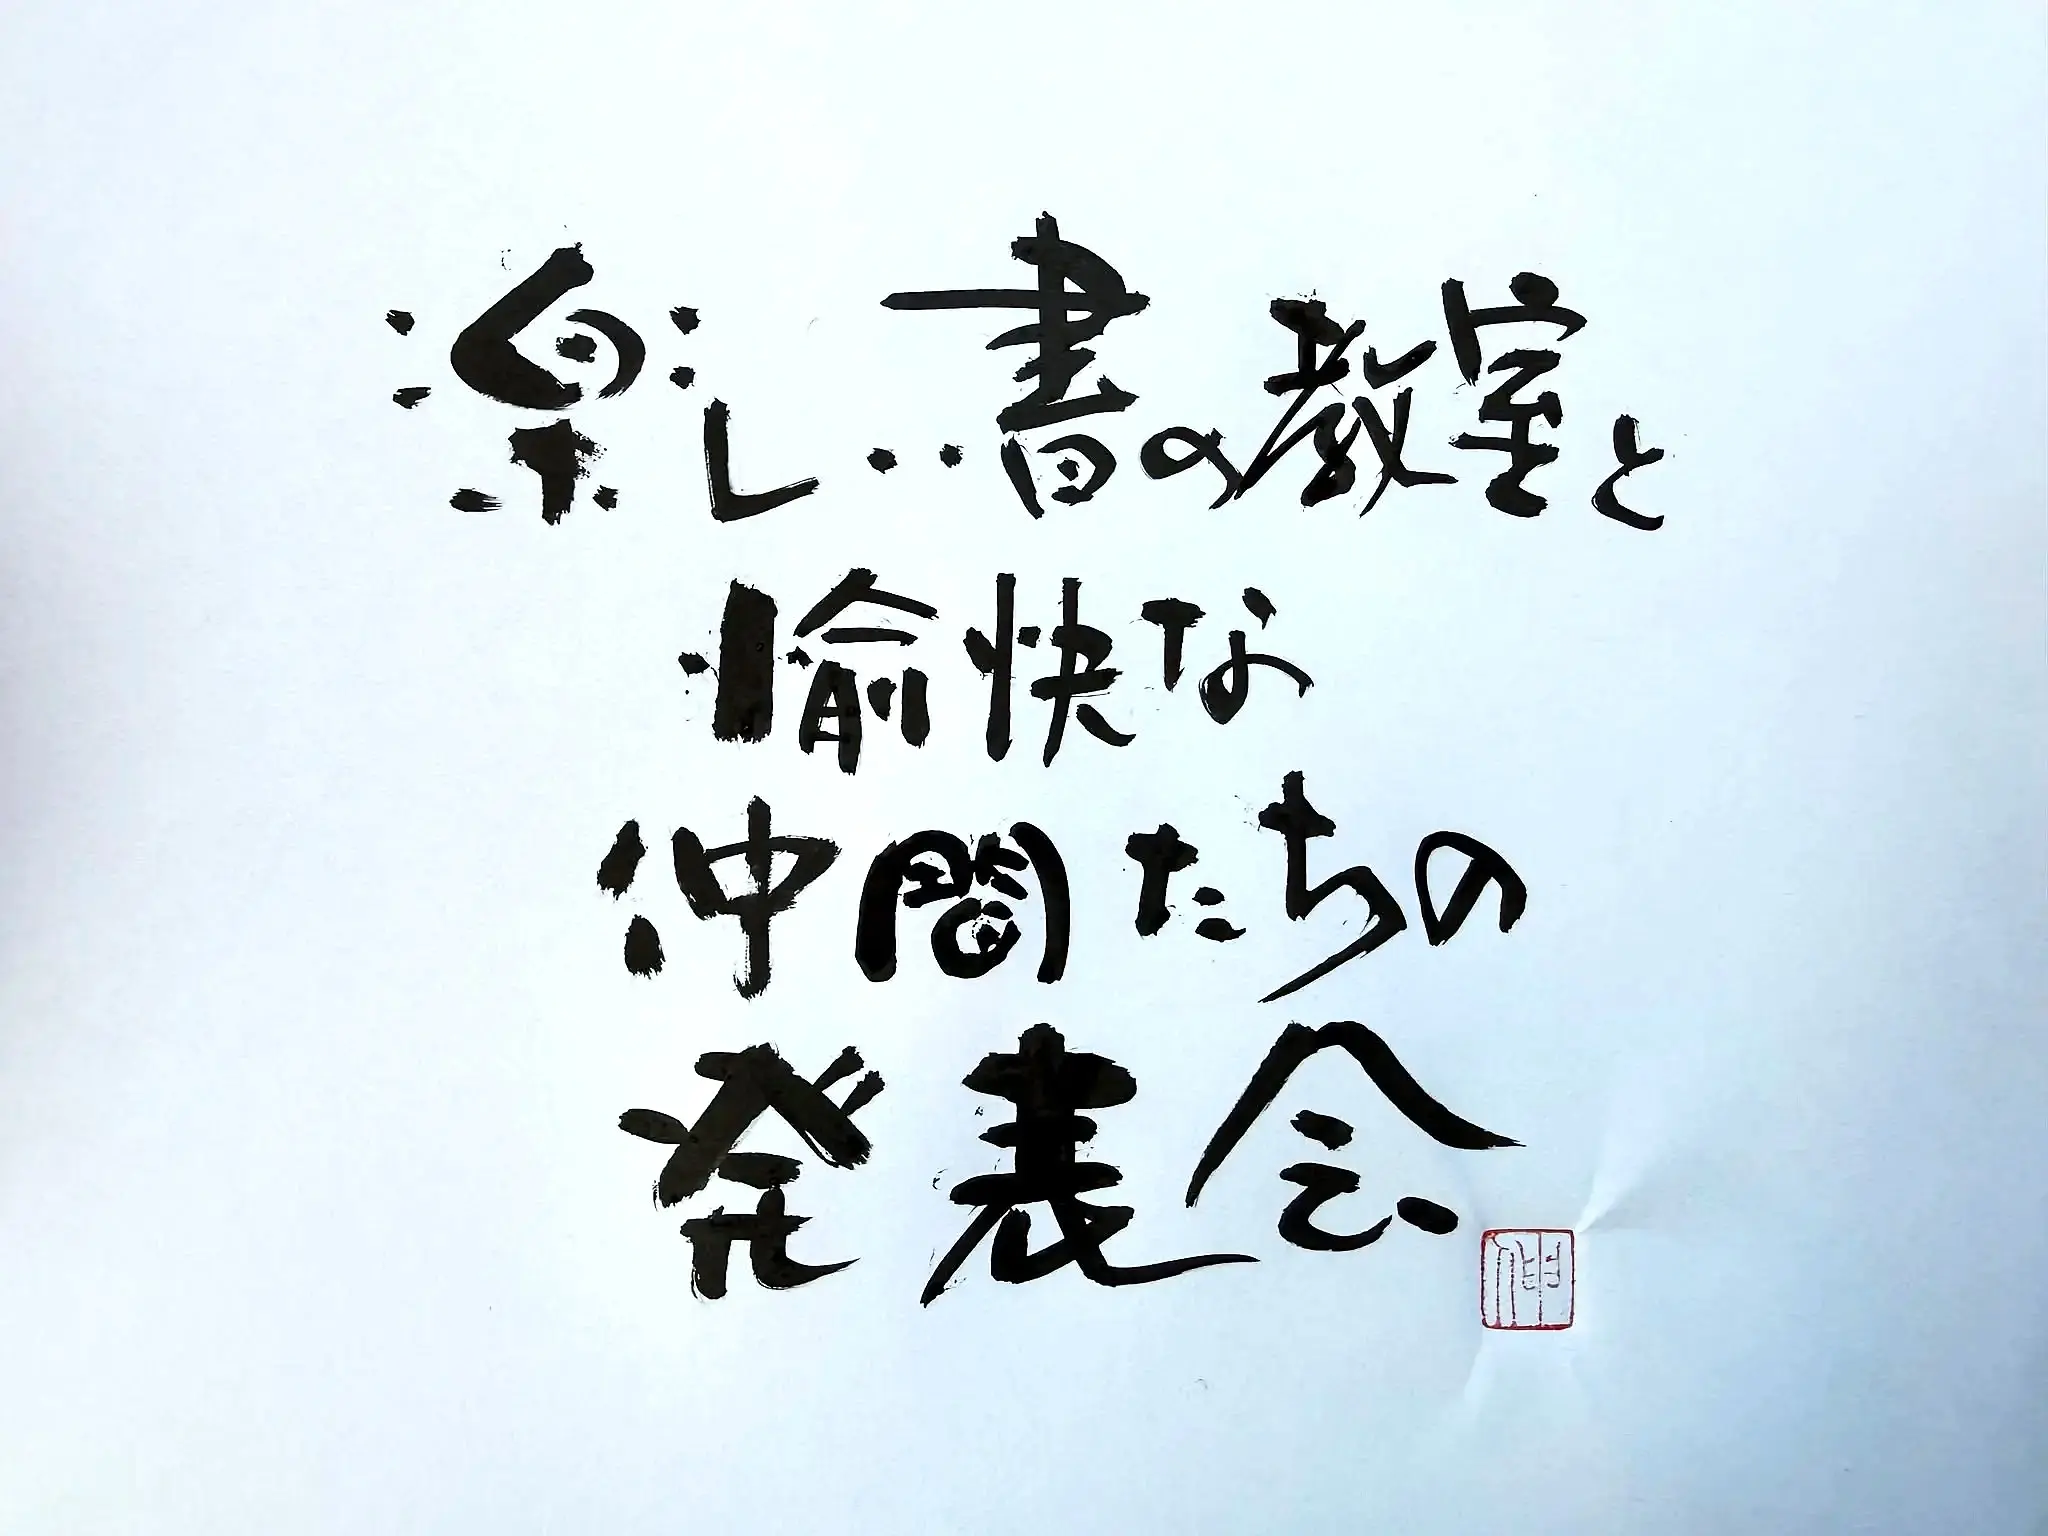 楽しい書の教室と
愉快な
仲間たちの
発表会